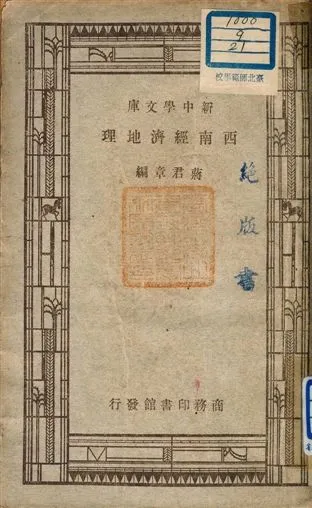 1000
9
21
臺北師範學校
新中學文庫
西南經濟地理
蔣君章編
絕版書
商務印書館發行